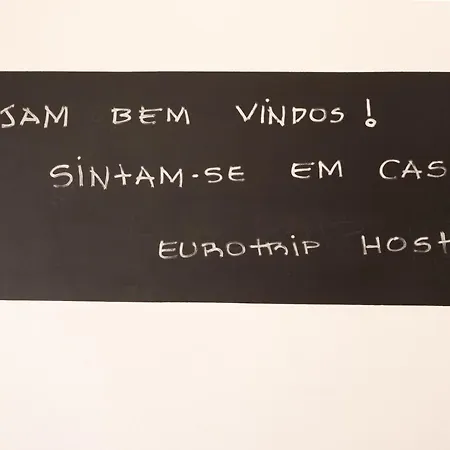 JAM BEM VINDOS!
SINTAM-SE EM CAS
EUROTRIP HOST